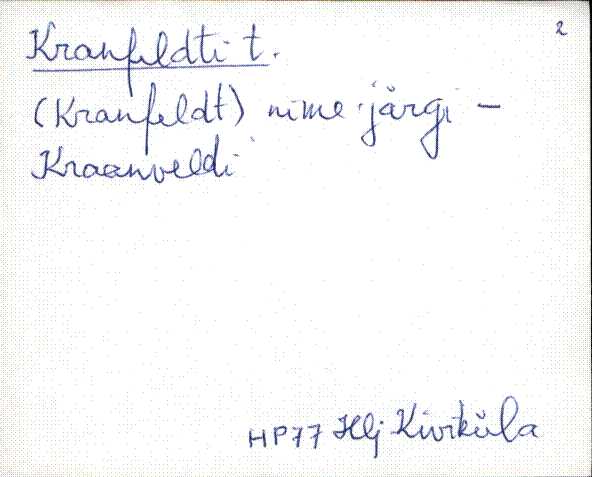 2
Kranfeldti t.
(Kranfeldt) nime järgi –
Kraanveldi
HP77 Hlj Kivküla